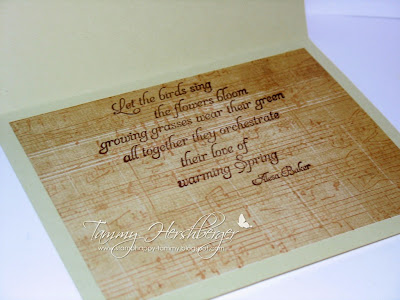 Let the birds sing
the flowers bloom
growing grasses wear their green
all together they orchestrate
their love of
warming Spring
Alesa Baker
Tammy Hershberger
www.stamphappy-tammy.blogspot.com